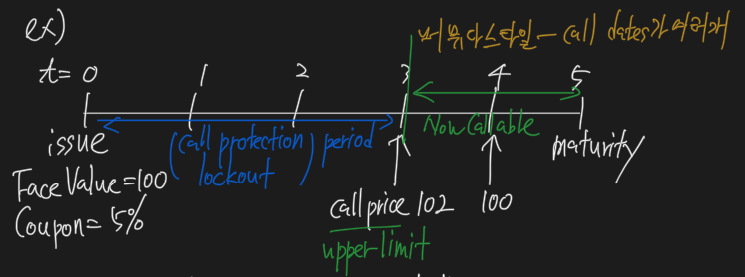 ex)
버뮤다스타일 - call dates가 여러개
t= 0 1 2 3 4 5
issue
(call protection) period
lockout
Now Callable
maturity
Face Value=100
Coupon= 5%
call price 102
100
upper limit